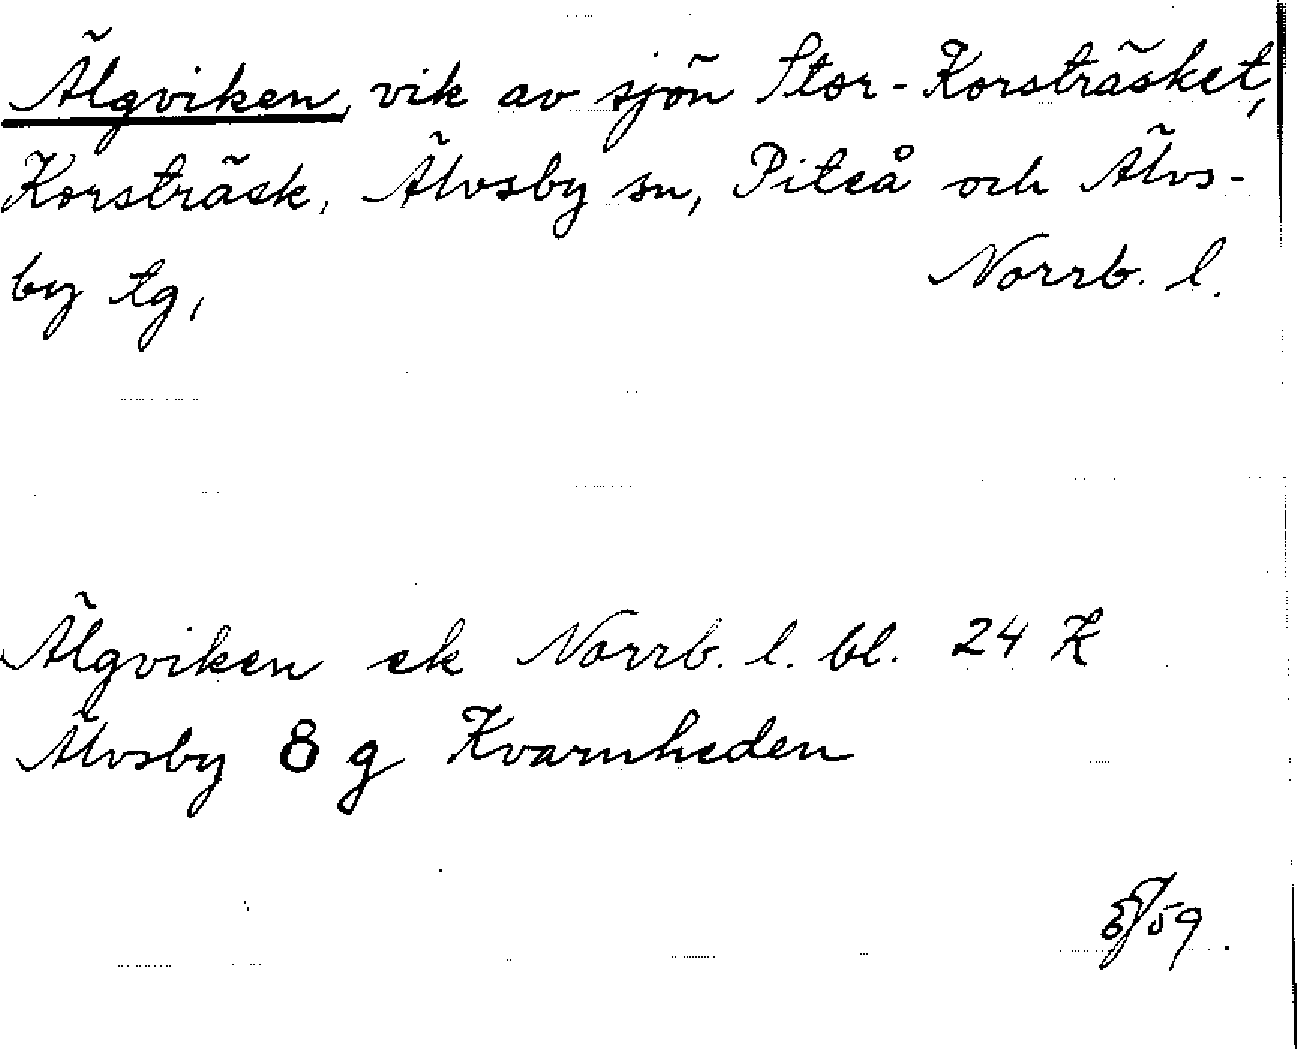 Älgviken, vik av sjön Stor-Korsträsket,
Korsträsk, Älvsby sn, Piteå och Älvs-
by tg, Norrb. l.
Älgviken ek Norrb. l. bl. 24 K
Älvsby 8 g Kvarnheden
59.